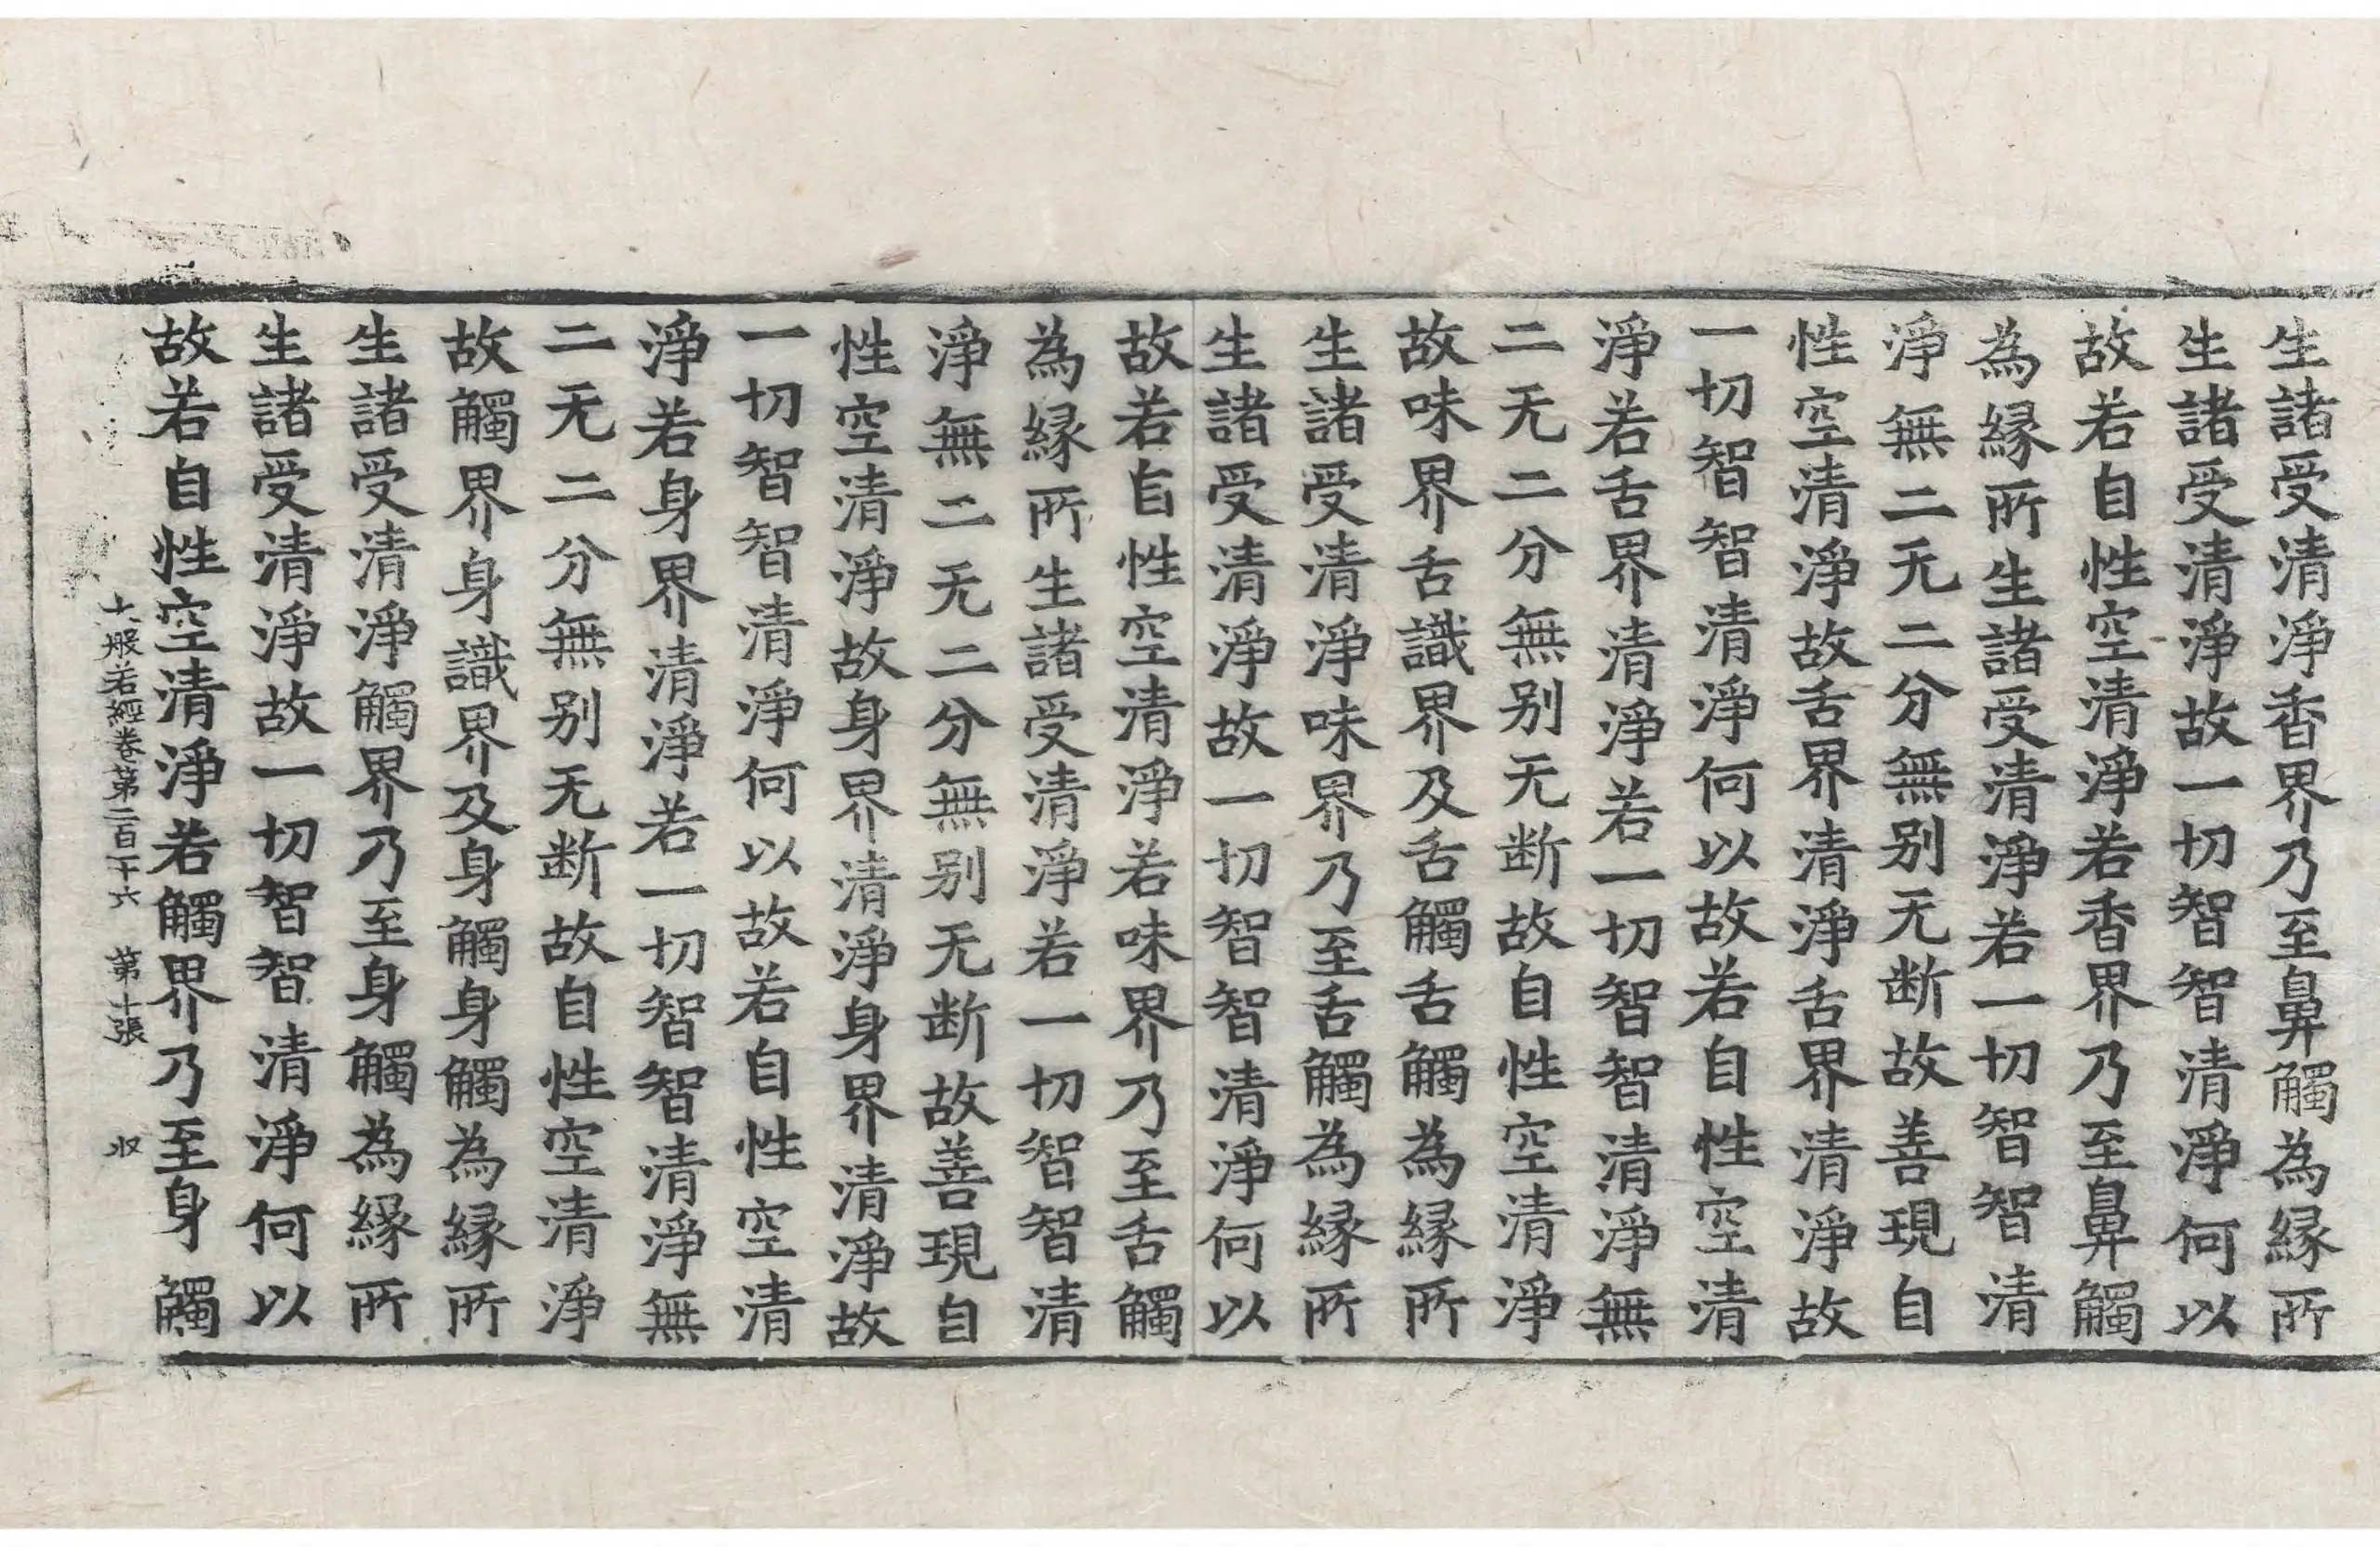 生諸受清淨香界乃至鼻觸為緣所
生諸受清淨故一切智智清淨何以
故若自性空清淨若香界乃至鼻觸
為緣所生諸受清淨若一切智智清
淨無二无二分無別无断故善現自
性空清淨故舌界清淨舌界清淨故
一切智智清淨何以故若自性空清
淨若舌界清淨若一切智智清淨無
二无二分無別无断故自性空清淨
故味界舌識界及舌觸舌觸為緣所
生諸受清淨味界乃至舌觸為緣所
生諸受清淨故一切智智清淨何以
故若自性空清淨若味界乃至舌觸
為緣所生諸受清淨若一切智智清
淨無二无二分無別无断故善現自
性空清淨故身界清淨身界清淨故
一切智智清淨何以故若自性空清
淨若身界清淨若一切智智清淨無
二无二分無別无断故自性空清淨
故觸界身識界及身觸身觸為緣所
生諸受清淨觸界乃至身觸為緣所
生諸受清淨故一切智智清淨何以
故若自性空清淨若觸界乃至身觸
大般若經卷第二百十六 第十張 収